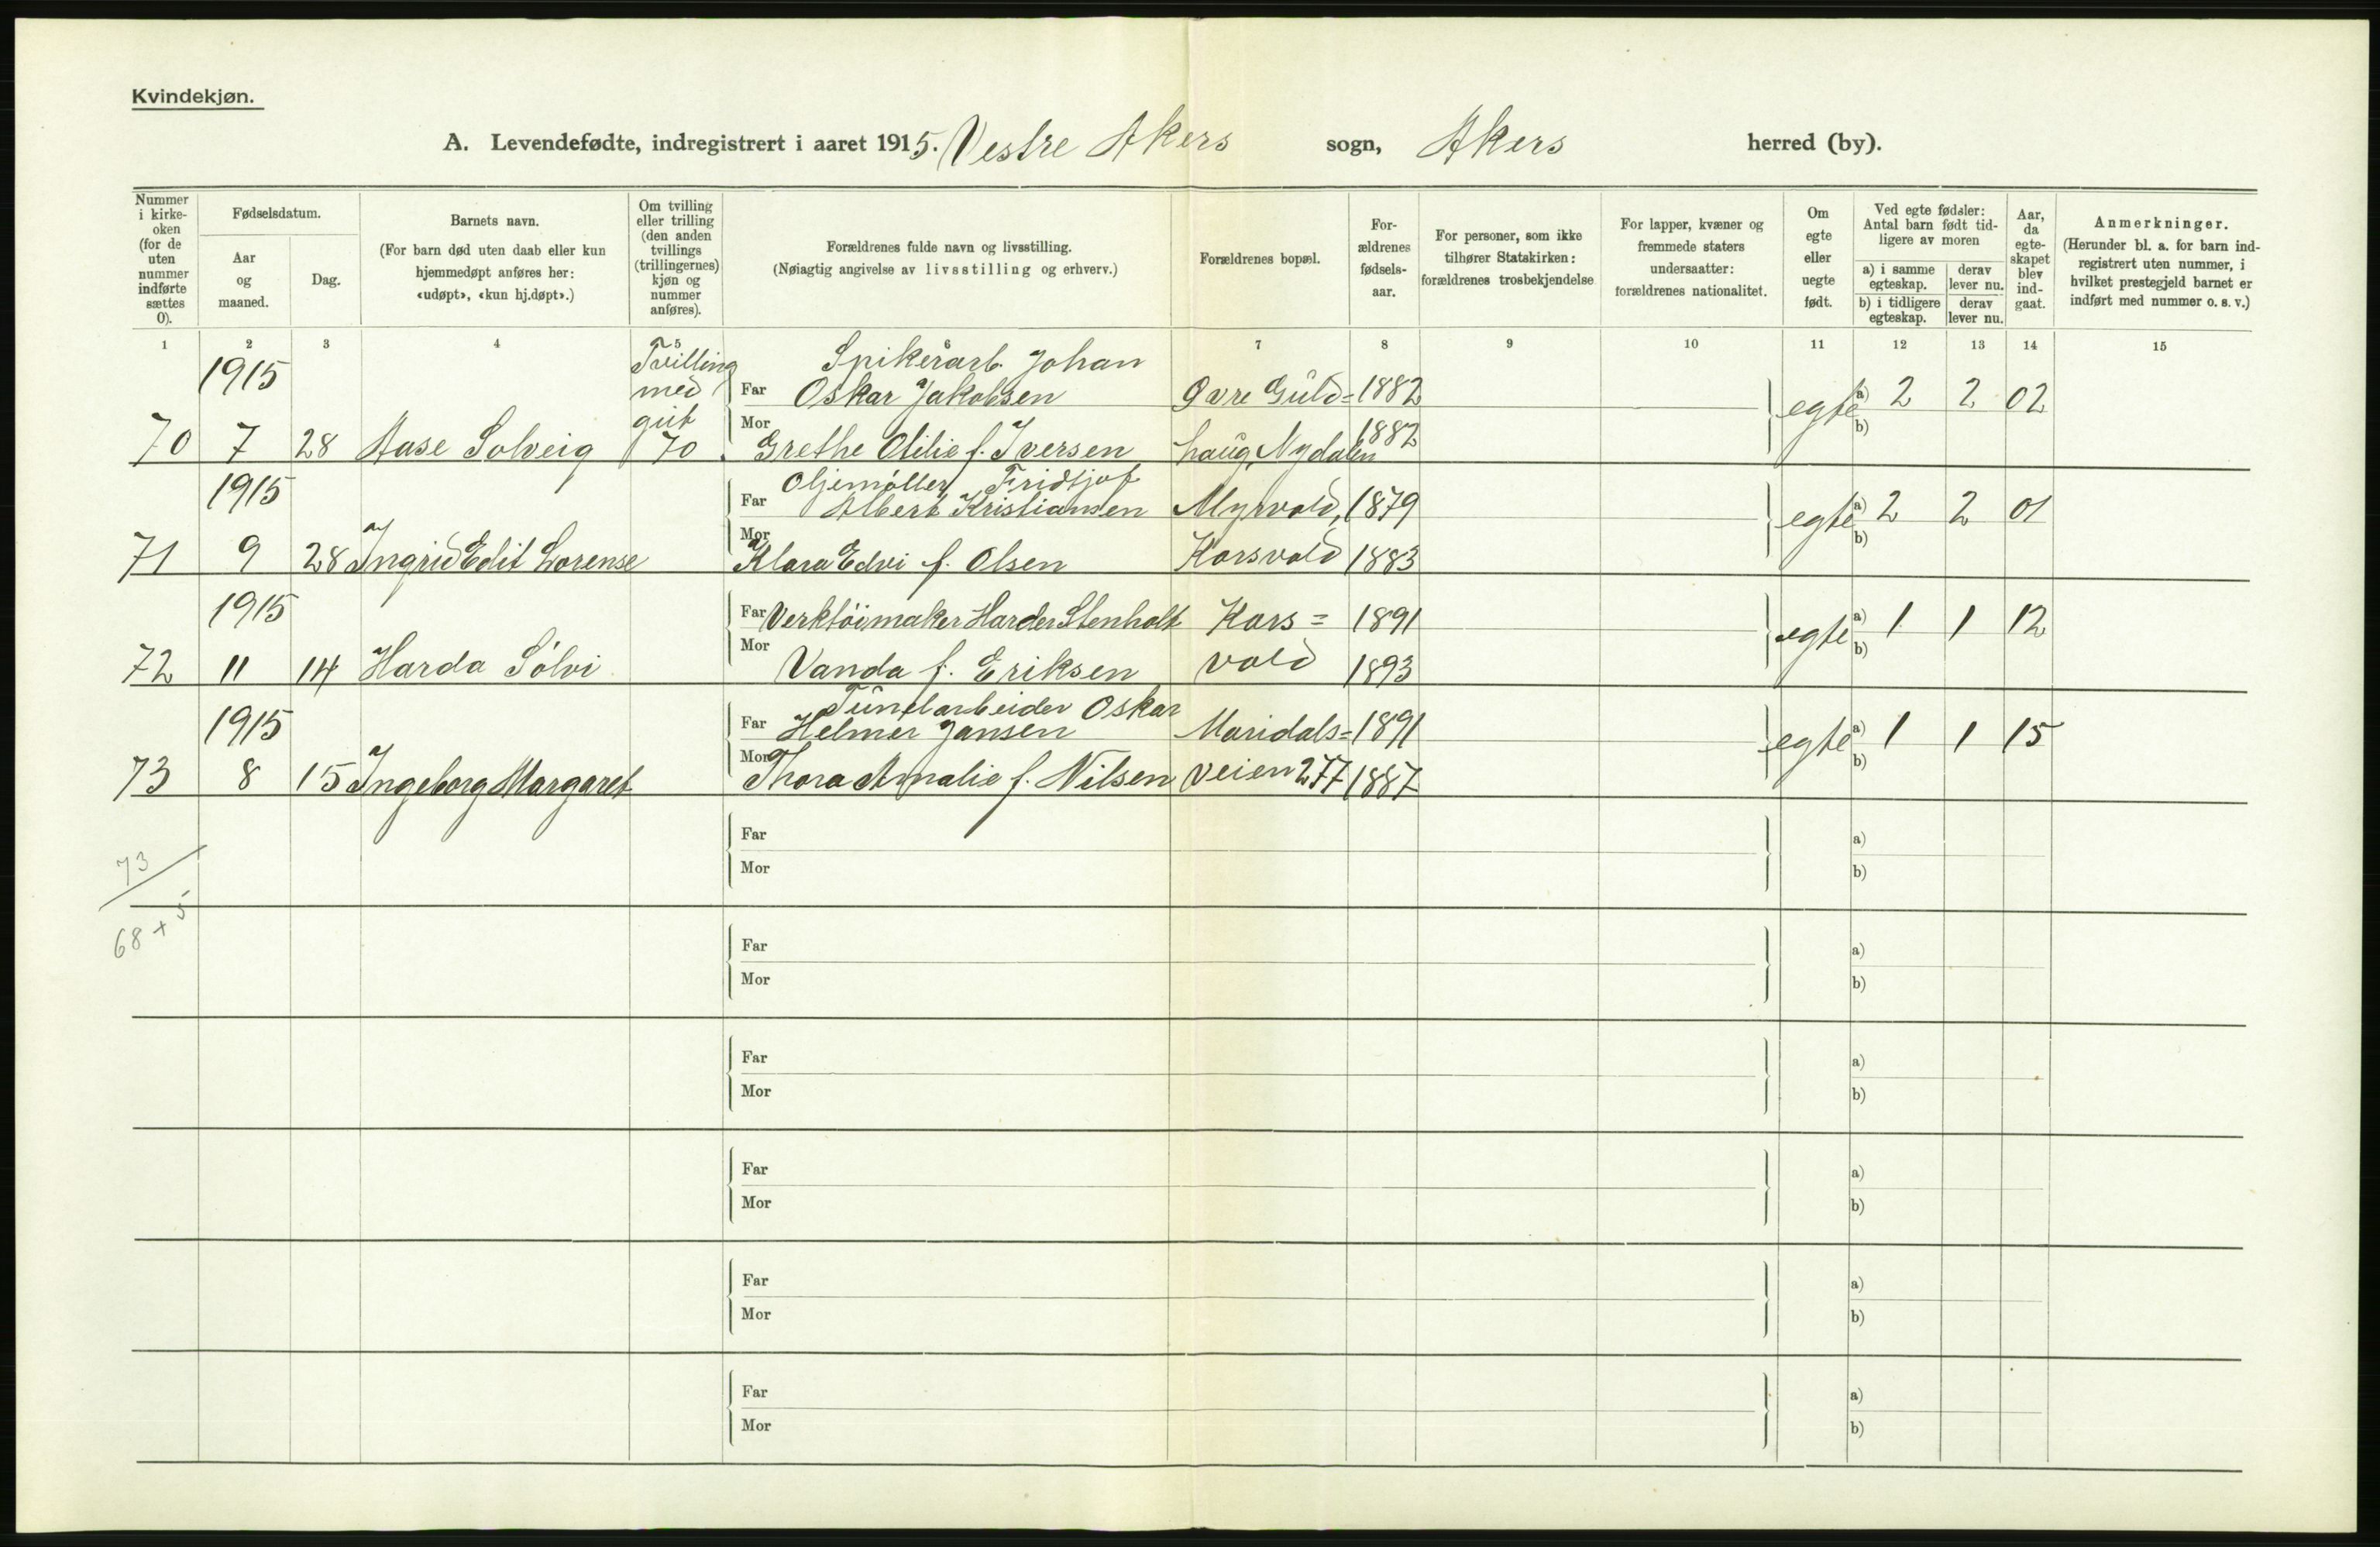 Kvindekjøn.
A. Levendefødte, indregistrert i aaret 1915. Vestre Akers sogn, Akers herred (by).
Nummer i kirke-oken (for de uten nummer indførte sættes 0).
Fødselsdatum.
Aar og maaned.
Dag.
Barnets navn.
(For barn død uten daab eller kun hjemmedøpt anføres her: «udøpt», «kun hj.døpt».)
Om tvilling eller trilling (den anden tvillings (trillingernes) kjøn og nummer anføres).
Forældrenes fulde navn og livsstilling.
(Nøiagtig angivelse av livsstilling og erhverv.)
Forældrenes bopæl.
For-ældrenes fødsels-aar.
For personer, som ikke tilhører Statskirken: forældrenes trosbekjendelse
For lapper, kvæner og fremmede staters undersaatter: forældrenes nationalitet.
Om egte eller uegte født.
Ved egte fødsler: Antal barn født tid-ligere av moren
a) i samme egteskap.
derav lever nu.
b) i tidligere egteskap.
derav lever nu.
Aar, da egte-skapet blev ind-gaat.
Anmerkninger.
(Herunder bl. a. for barn ind-registrert uten nummer, i hvilket prestegjeld barnet er indført med nummer o. s. v.)
1 2 3 4 5 6 7 8 9 10 11 12 13 14 15
1915 Tvilling Spikerarb. Johan
med Far Oskar Jakobsen Øvre Guld= 1882 egte a) 2 2 02
gut Mor b)
70 7 28 Aase Solveig 70 Grethe Otilie f. Iversen haug, Nydalen 1882
1915 Oljemøller Fridtjof
Far Albert Kristiansen Myrvold, 1879 egte a) 2 2 01
Mor b)
71 9 28 Ingrid Edit Lorense Klara Edvi f. Olsen Korsvold 1883
1915 Far Verktøimaker Harder Stenholt Kors= 1891 egte a) 1 1 12
Mor b)
72 11 14 Harda Sølvi Vanda f. Eriksen vold 1893
Tunelarbeider Oskar
1915 Far Helmer Jansen Maridals= 1891 egte a) 1 1 15
Mor b)
73 8 15 Ingeborg Margaret Thora Amalie f. Nilsen veien 277 1887
Far a)
73
Mor b)
68 + 5
Far a)
Mor b)
Far a)
Mor b)
Far a)
Mor b)
Far a)
Mor b)
Far a)
Mor b)